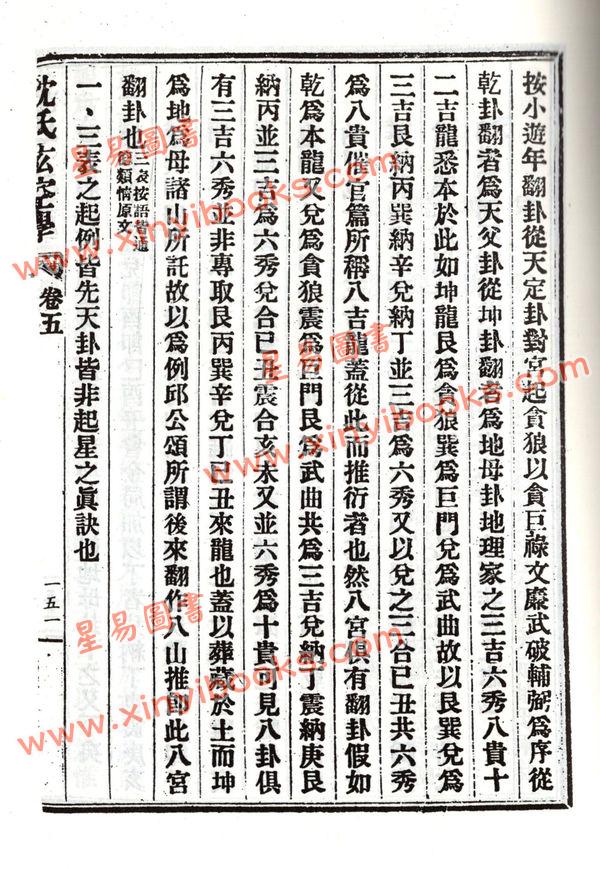 按小遊年翻卦從天定卦對宮起貪狼以貪巨祿文廉武破輔弼爲序從
乾卦翻者爲天父卦從坤卦翻者爲地母卦地理家之三吉六秀八貴十
二吉龍悉本於此如坤龍艮爲貪狼巽爲巨門兌爲武曲故以艮巽兌爲
三吉艮納丙巽納辛兌納丁並三吉爲六秀又以兌之三合巳丑共六秀
爲八貴催官篇所稱八吉龍蓋從此而推衍者也然八宮俱有翻卦假如
乾爲本龍又兌爲貪狼震爲巨門艮爲武曲共爲三吉兌納丁震納庚艮
納丙並三吉爲六秀兌合巳丑震合亥未又並六秀爲十貴可見八卦俱
有三吉六秀並非專取艮丙巽辛兌丁巳丑來龍也蓋以葬藏於土而坤
爲地爲母諸山所託故以爲例邱公頌所謂後來翻作八山推即此八宮
翻卦也三表按語皆通德類情原文
一、三表之起例皆先天卦皆非起星之眞訣也
沈氏玄空學
卷五
一五一
星易圖書
www.xinyibooks.com
星易圖書
www.xinyibooks.com
星易圖書
www.xinyibooks.com
星易圖書
www.xinyibooks.com